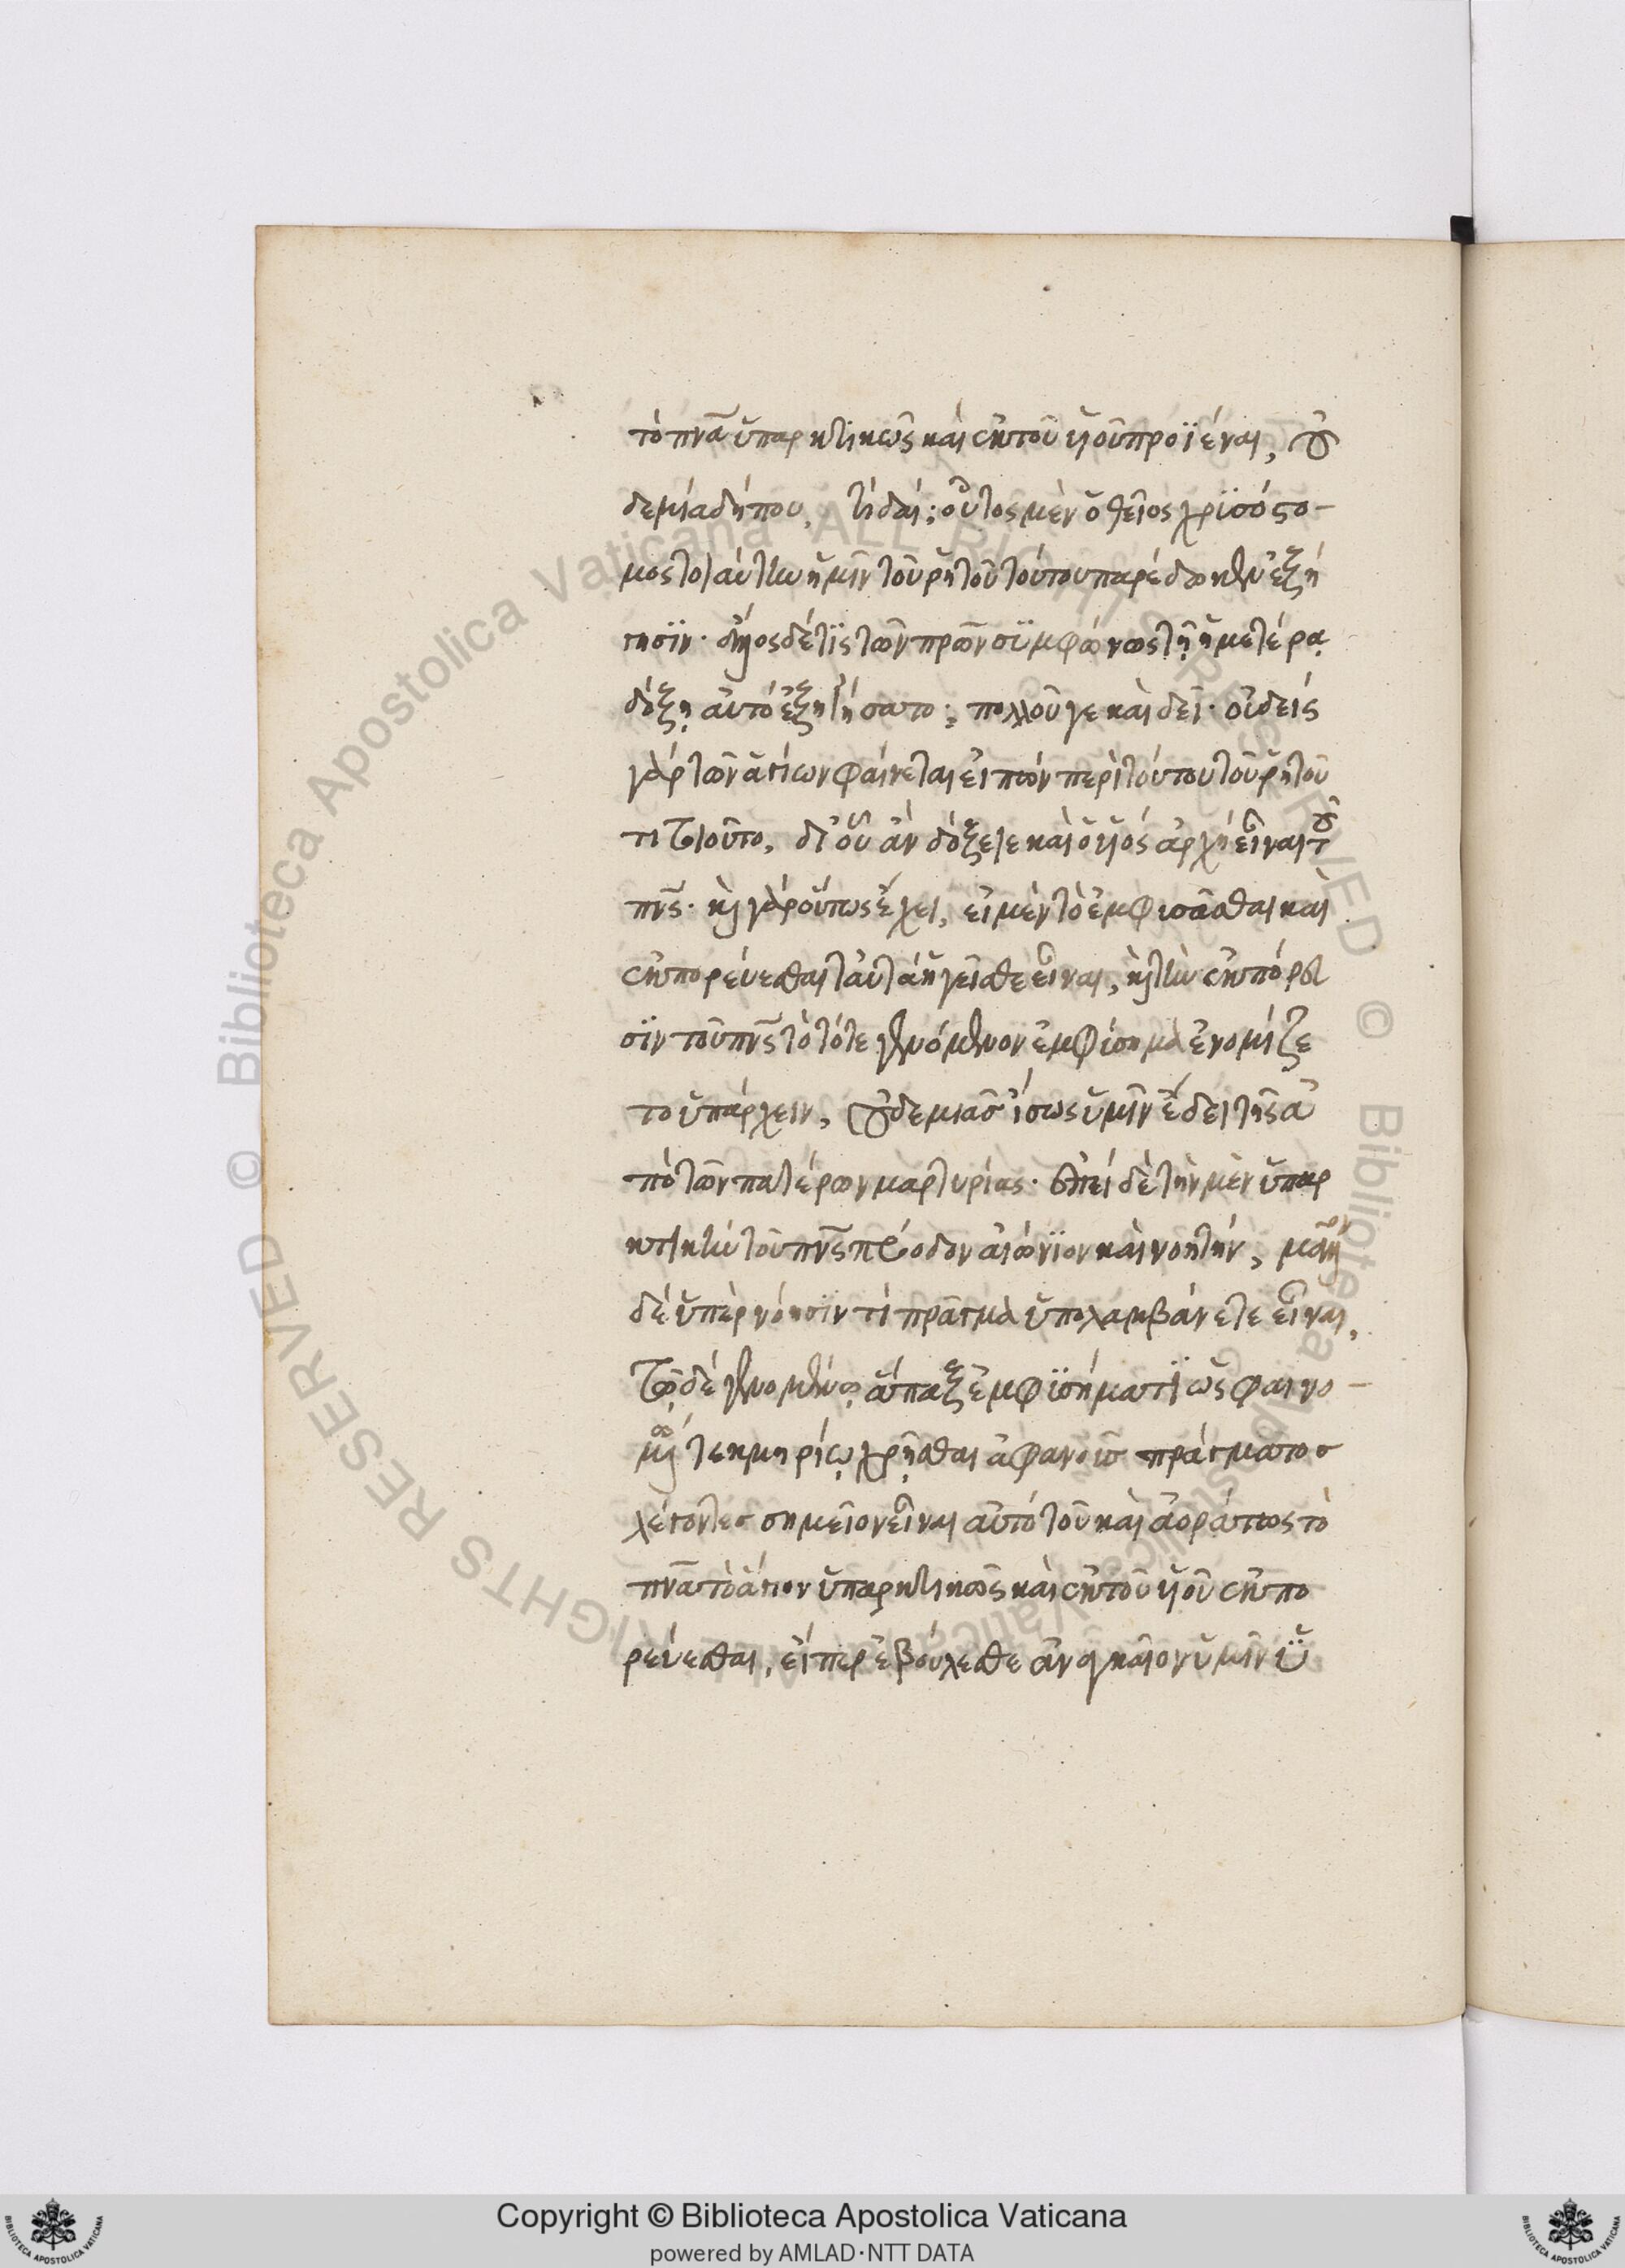 τὸ πνᾶ ὑπαρκτικῶς καὶ ἐκ τοῦ υἱοῦ προϊέναι, οὐ
δεμία δήπου, τί δαί; οὗτος μὲν ὁ θεῖος χρϊσόστο-
μος τοιαύτην ἡμῖν τοῦ ῥητοῦ τούτου παρέδωκεν ἐξή
γησϊν· ἄλλος δέ τϊς τῶν πρων σϋμφώνως τῇ ἡμετέρᾳ
δόξῃ αὐτὸ ἐξηγήσατο; πολλοῦ γε καὶ δεῖ· οὐδεὶς
γὰρ τῶν ἁγίων φαίνεται εἰπὼν περὶ τούτου τοῦ ῥητοῦ
τι τοιοῦτο, δι' οὗ ἂν δόξειε καὶ ὁ υἱός ἀρχή εἶναι τοῦ
πνς· καὶ γὰρ οὕτως ἔχει, εἰ μὲν τὸ ἐμφυσᾶσθαι καὶ
ἐκπορεύεσθαι ταὐτὰ ἡγεῖσθε εἶναι, καὶ τὴν ἐκπόρευ
σϊν τοῦ πνς τὸ τότε γενόμενον ἐμφύσημα ἐνομίζε
το ὑπάρχειν, οὐδεμιᾶσ ἴσως ὑμῖν ἔδει τῆς ἀ
πὸ τῶν πατέρων μαρτυρίας· ἐπεὶ δὲ τὴν μὲν ὑπαρ
κτικὴν τοῦ πνς πρόοδον αἰώνϊον καὶ νοητήν, μᾶλλον
δέ ὑπὲρ νόησϊν τί πρᾶγμα ὑπολαμβάνετε εἶναι,
τῷ δέ γενομένῳ ἅπαξ ἐμφϋσήματϊ ὡς φαινο-
μένῳ τεκμηρίῳ χρῆσθαι ἀφανοῦς πράγματοσ
λέγοντεσ σημεῖον εἶναι αὐτὸ τοῦ καὶ ἀοράτως τὸ
πνᾶ τὸ ἅγιον ὑπαρκτικῶς καὶ ἐκ τοῦ υἱοῦ ἐκπο
ρεύεσθαι, εἴπερ ἐβούλεσθε ἀναγκαῖον ὑμῖν ὑ
Copyright © Biblioteca Apostolica Vaticana
powered by AMLAD·NTT DATA